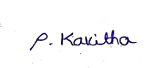 P. Kavitha